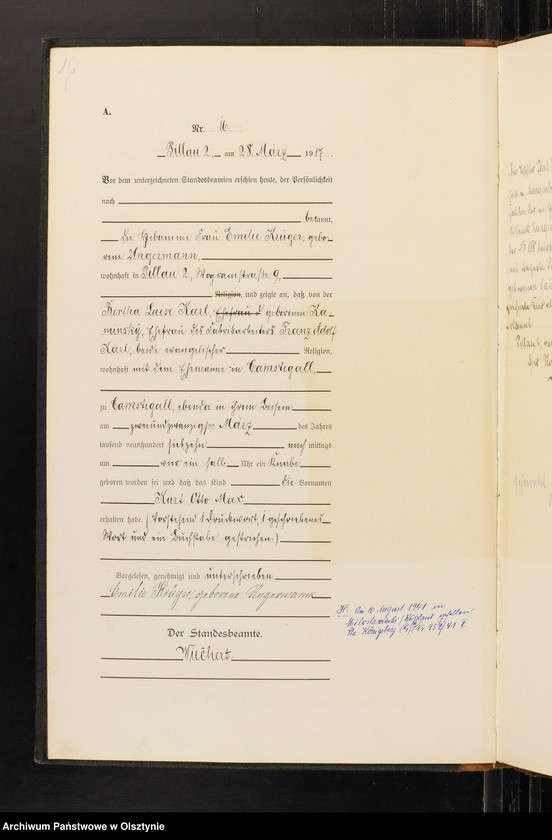 16
A.
Nr. 16
Pillau 2, am 28. März 1917.
Vor dem unterzeichneten Standesbeamten erschien heute, der Persönlichkeit
nach
bekannt,
die Hebamme Frau Emilie Krüger, gebo-
rene Ungermann,
wohnhaft in Pillau 2, Wogramstraße 9,
Religion, und zeigte an, daß von der
Bertha Luise Karl, Ehefrau d geborenen Ka-
minsky, Ehefrau des Fabrikarbeiters Franz Adolf
Karl, beide evangelischer Religion,
wohnhaft mit dem Ehemanne in Camstigall,
zu Camstigall, ebenda in ihrem Beisein
am zweiundzwanzigsten März des Jahres
tausend neunhundert siebzehn nachmittags
um vier ein halb Uhr ein Knabe
geboren worden sei und daß das Kind die Vornamen
Kurt Otto Max
erhalten habe. (Vorstehend 1 Druckwort, 1 geschriebenes
Wort und ein Buchstabe gestrichen.)
Vorgelesen, genehmigt und unterschrieben
Emilie Krüger, geborene Ungermann
Der Standesbeamte.
Wiechert.
Am 10 August 1941 in
Rußland gefallen
Sta. Königsberg (Pr)
Archiwum Państwowe w Olsztynie